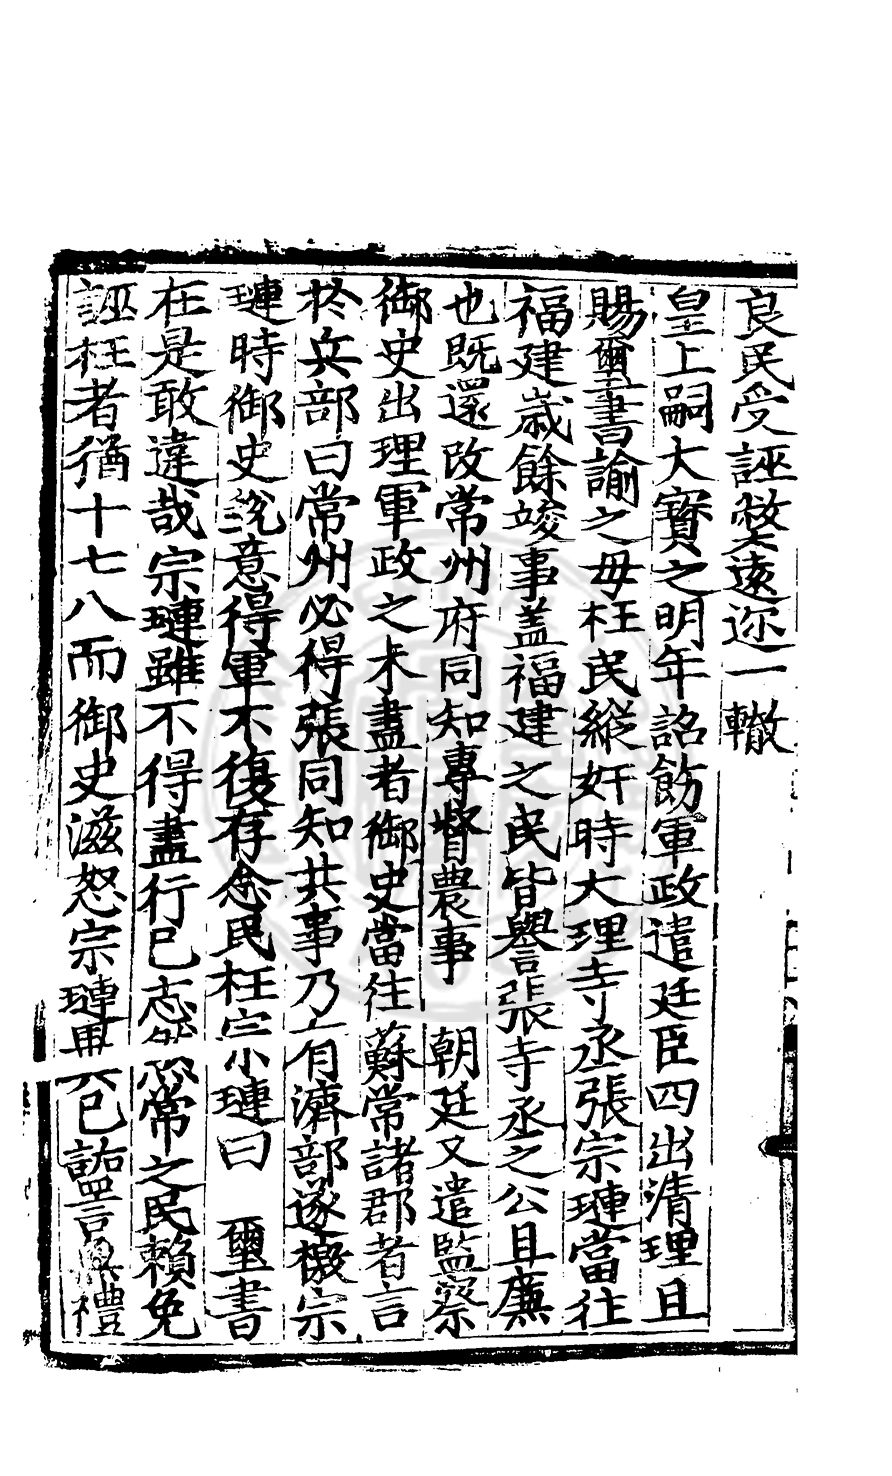 良民受誣獘遠迩一轍
皇上嗣大寶之明年詔飭軍政遣廷臣四出清理且
賜璽書諭之毋枉民縱奸時大理寺丞張宗璉當往
福建歲餘竣事盖福建之民皆譽張寺丞之公且廉
也既還改常州府同知專督農事　朝廷又遣監察
御史出理軍政之未盡者御史當往蘇常諸郡者言
扵兵部曰常州必得張同知共事乃有濟部遂檄宗
璉時御史意得軍不復存念民枉宗璉曰　璽書
在是敢違哉宗璉雖不得盡行已志然常之民賴免
誣枉者猶十七八而御史滋怒宗璉異已詬詈禮